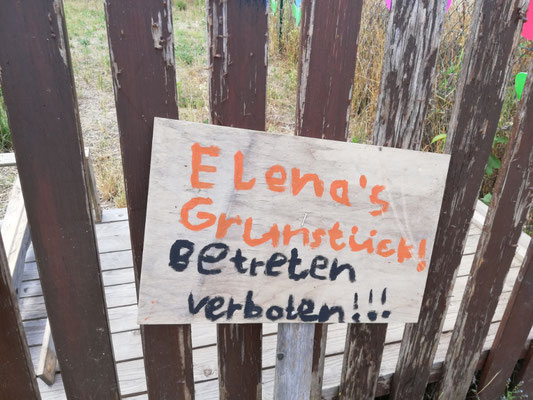 Elena's
Grunstück!
Betreten
verboten!!!